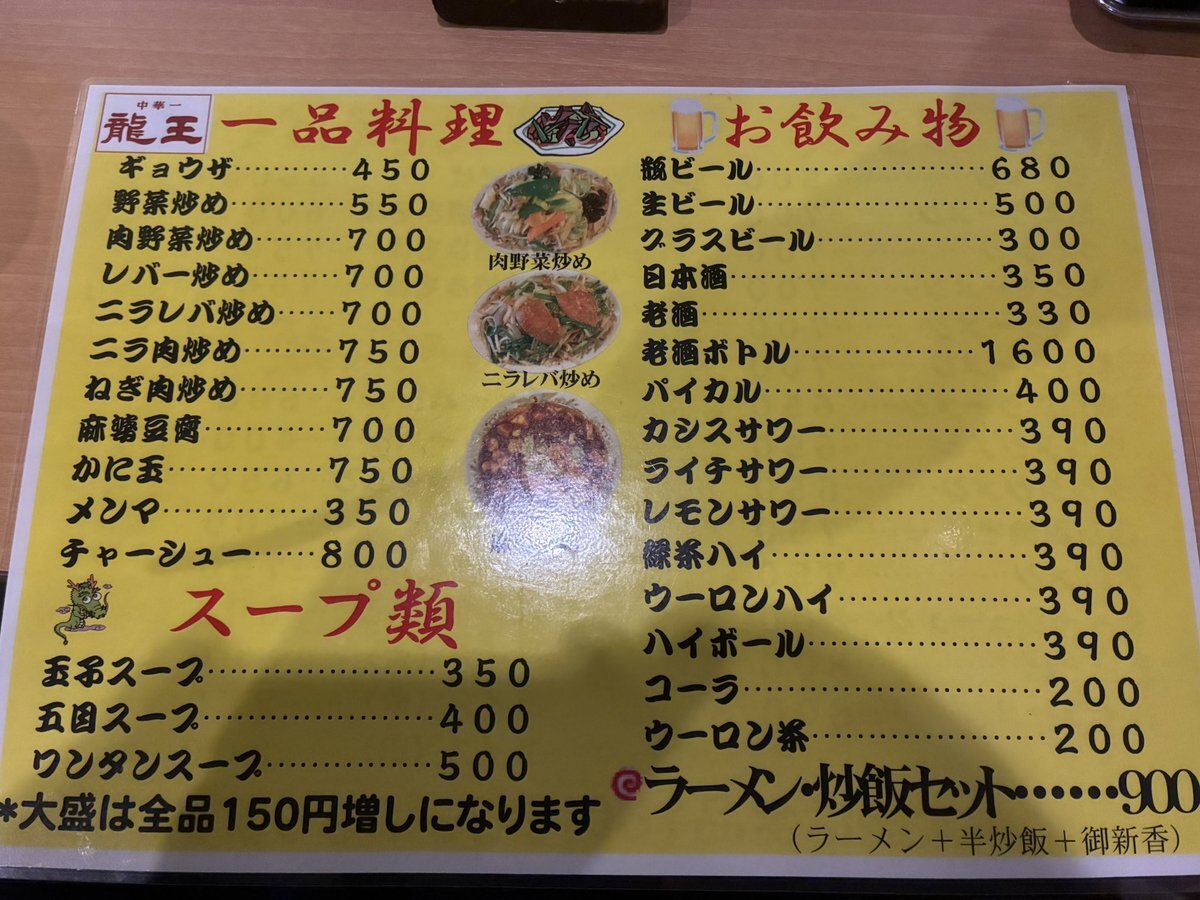 中華一
龍王
一品料理
ギョウザ…………450
野菜炒め…………550
肉野菜炒め………700
レバー炒め………700
ニラレバ炒め……700
ニラ肉炒め………750
ねぎ肉炒め………750
麻婆豆腐…………700
かに玉……………750
メンマ……………350
チャーシュー……800
肉野菜炒め
ニラレバ炒め
スープ類
玉子スープ……………………350
五目スープ……………………400
ワンタンスープ………………500
*大盛は全品150円増しになります
お飲み物
瓶ビール……………………680
生ビール……………………500
グラスビール………………300
日本酒………………………350
老酒…………………………330
老酒ボトル………………1600
パイカル……………………400
カシスサワー………………390
ライチサワー………………390
レモンサワー………………390
緑茶ハイ……………………390
ウーロンハイ………………390
ハイボール…………………390
コーラ………………………200
ウーロン茶…………………200
ラーメン・炒飯セット……900
（ラーメン＋半炒飯＋御新香）